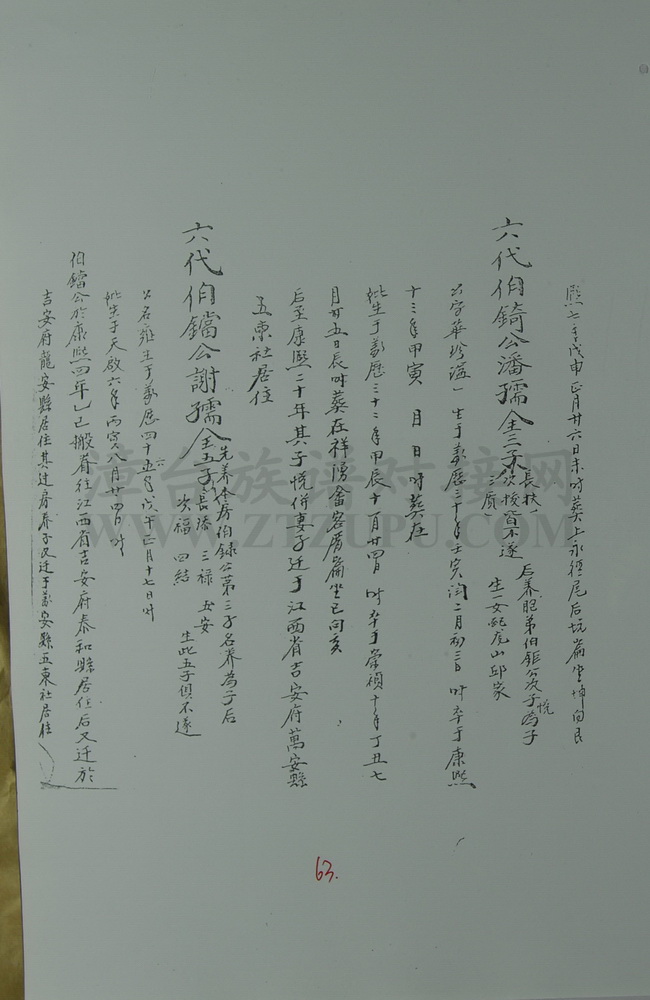 熙七年戊申正月廿六日未时葬上永徑尾后坑崙坐坤向艮
六代伯錡公潘孺仝三子
長扶
次梭 皆不遂
三質
后養胞弟伯鉅公次子悅為子
生一女配尾山邱家
公字華珍謚 生于萬歷三十年壬寅润二月初三日 时卒于康熙
十三年甲寅 月 日时葬在
妣生于萬歷三十二年甲辰十一月廿四日 时卒于崇禎十年丁丑七
月廿五日辰时葬在祥湧畬客厝崙坐巳向亥
后至康熙二十年其子悅併妻子迁于江西省吉安府萬安縣
五東社居住
六代伯鐺公謝孺仝五子
先养本房伯錄公第三子名养為子后
長漆 三禄 五安
次福 四結
生此五子俱不遂
公名雍生于萬歷四十六年戊午正月十七日时
妣生于天啟六年丙寅八月廿四日时
伯鐺公於康熙四年乙巳搬眷往江西省吉安府泰和縣居住后又迁於
吉安府龍安縣居住其过房养子又迁于萬安縣五東社居住
63.
漳台族谱对接网
WWW.ZTZUPU.COM